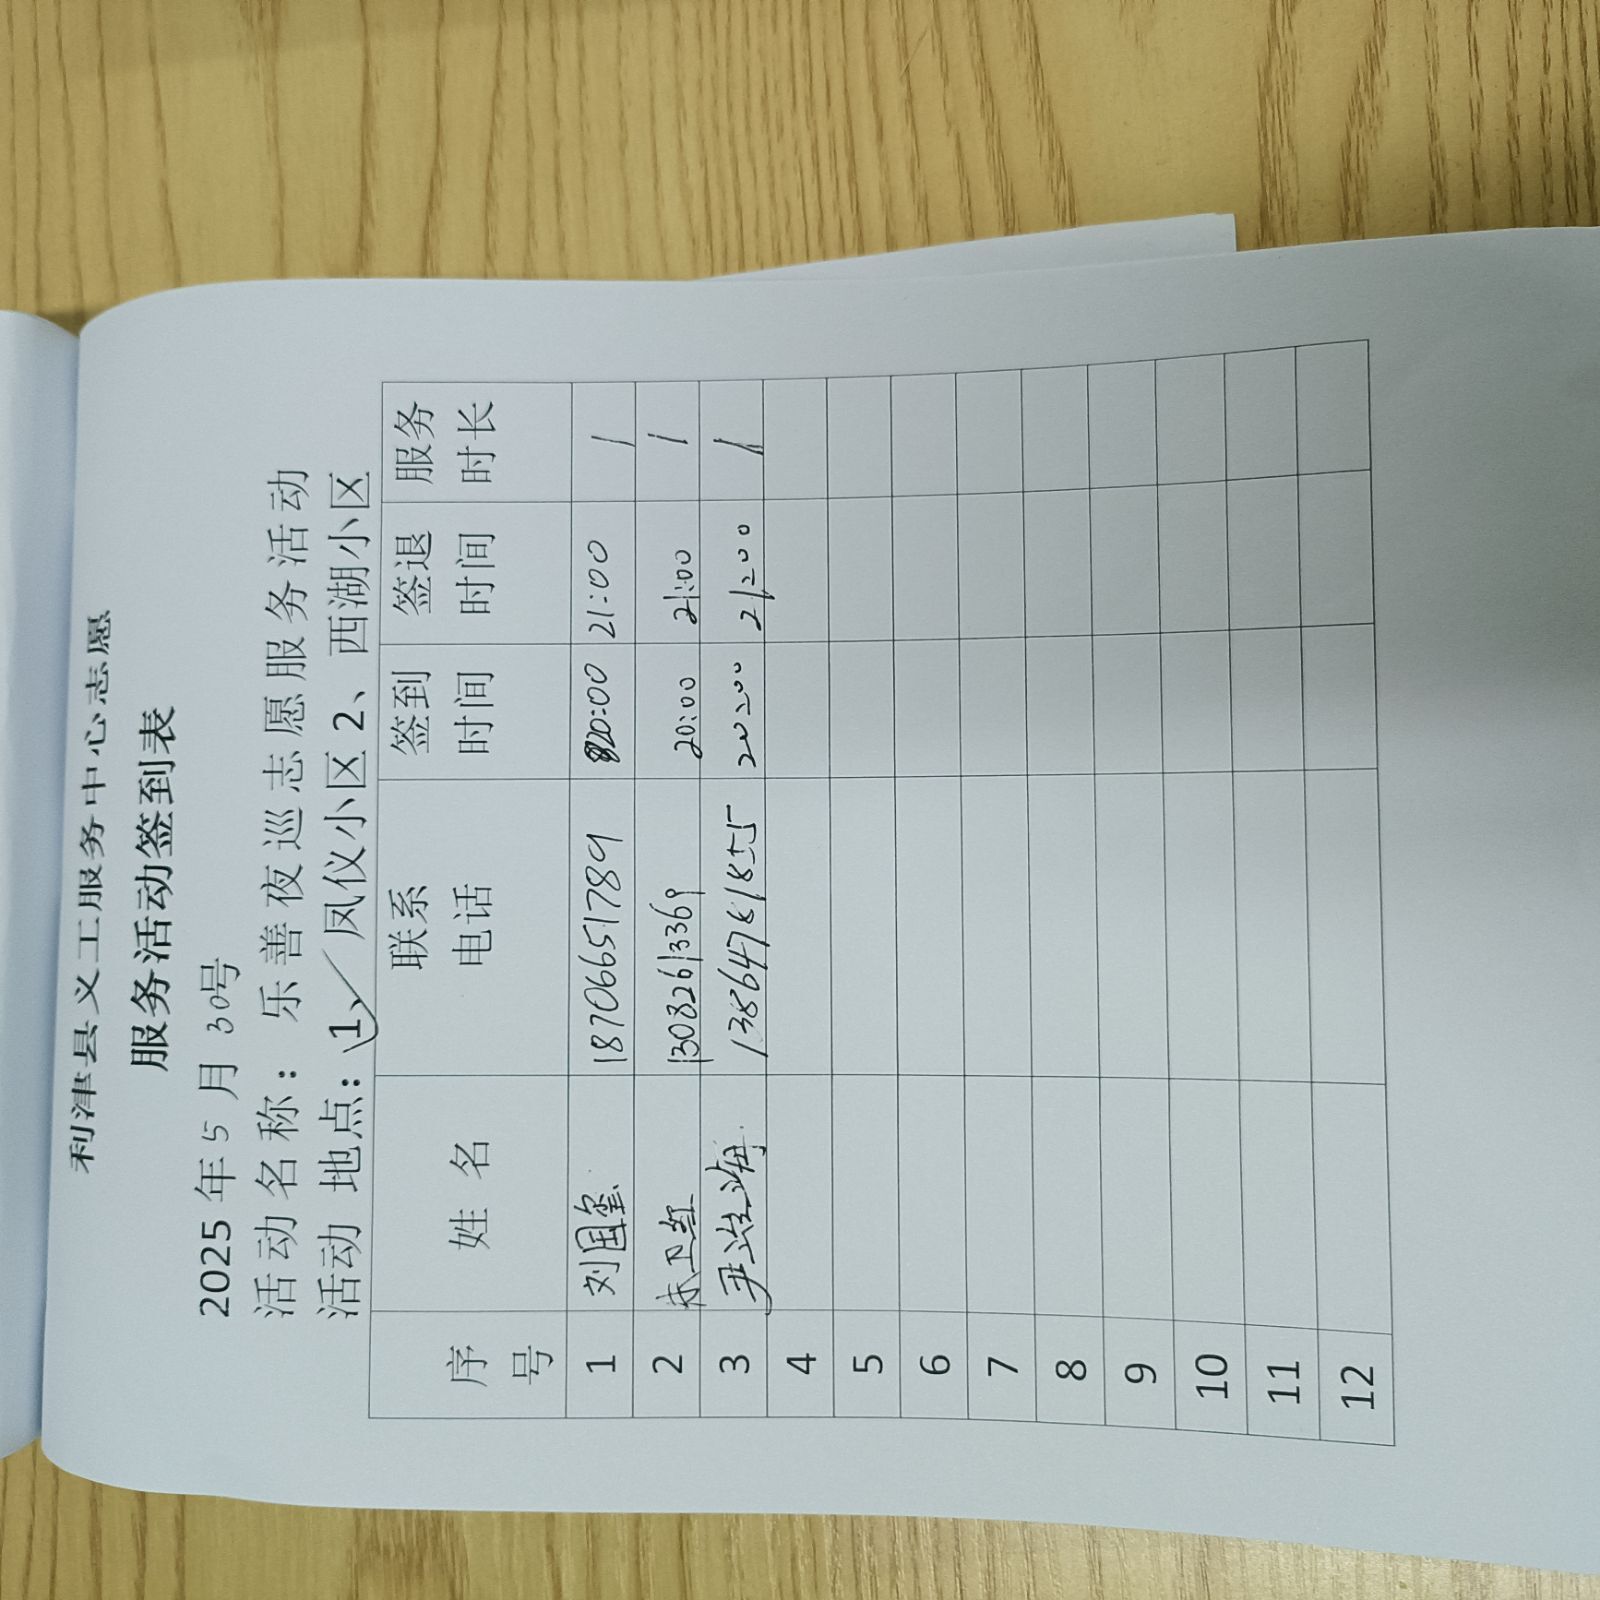 利津县义工服务中心志愿
服务活动签到表
2025年5月30号
活动名称：乐善夜巡志愿服务活动
活动 地点：1、凤仪小区 2、西湖小区
序号 姓 名 联系电话 签到时间 签退时间 服务时长
1 刘国玺 18706651789 20:00 21:00 1
2 卫红 13082613369 20:00 21:00 1
3 尹海 20:00 21:00 1
4
5
6
7
8
9
10
11
12